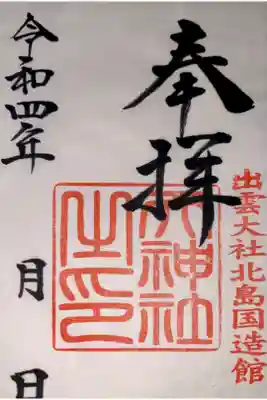 出雲大社北島国造館
奉拝
天神社之印
令和四年 月 日